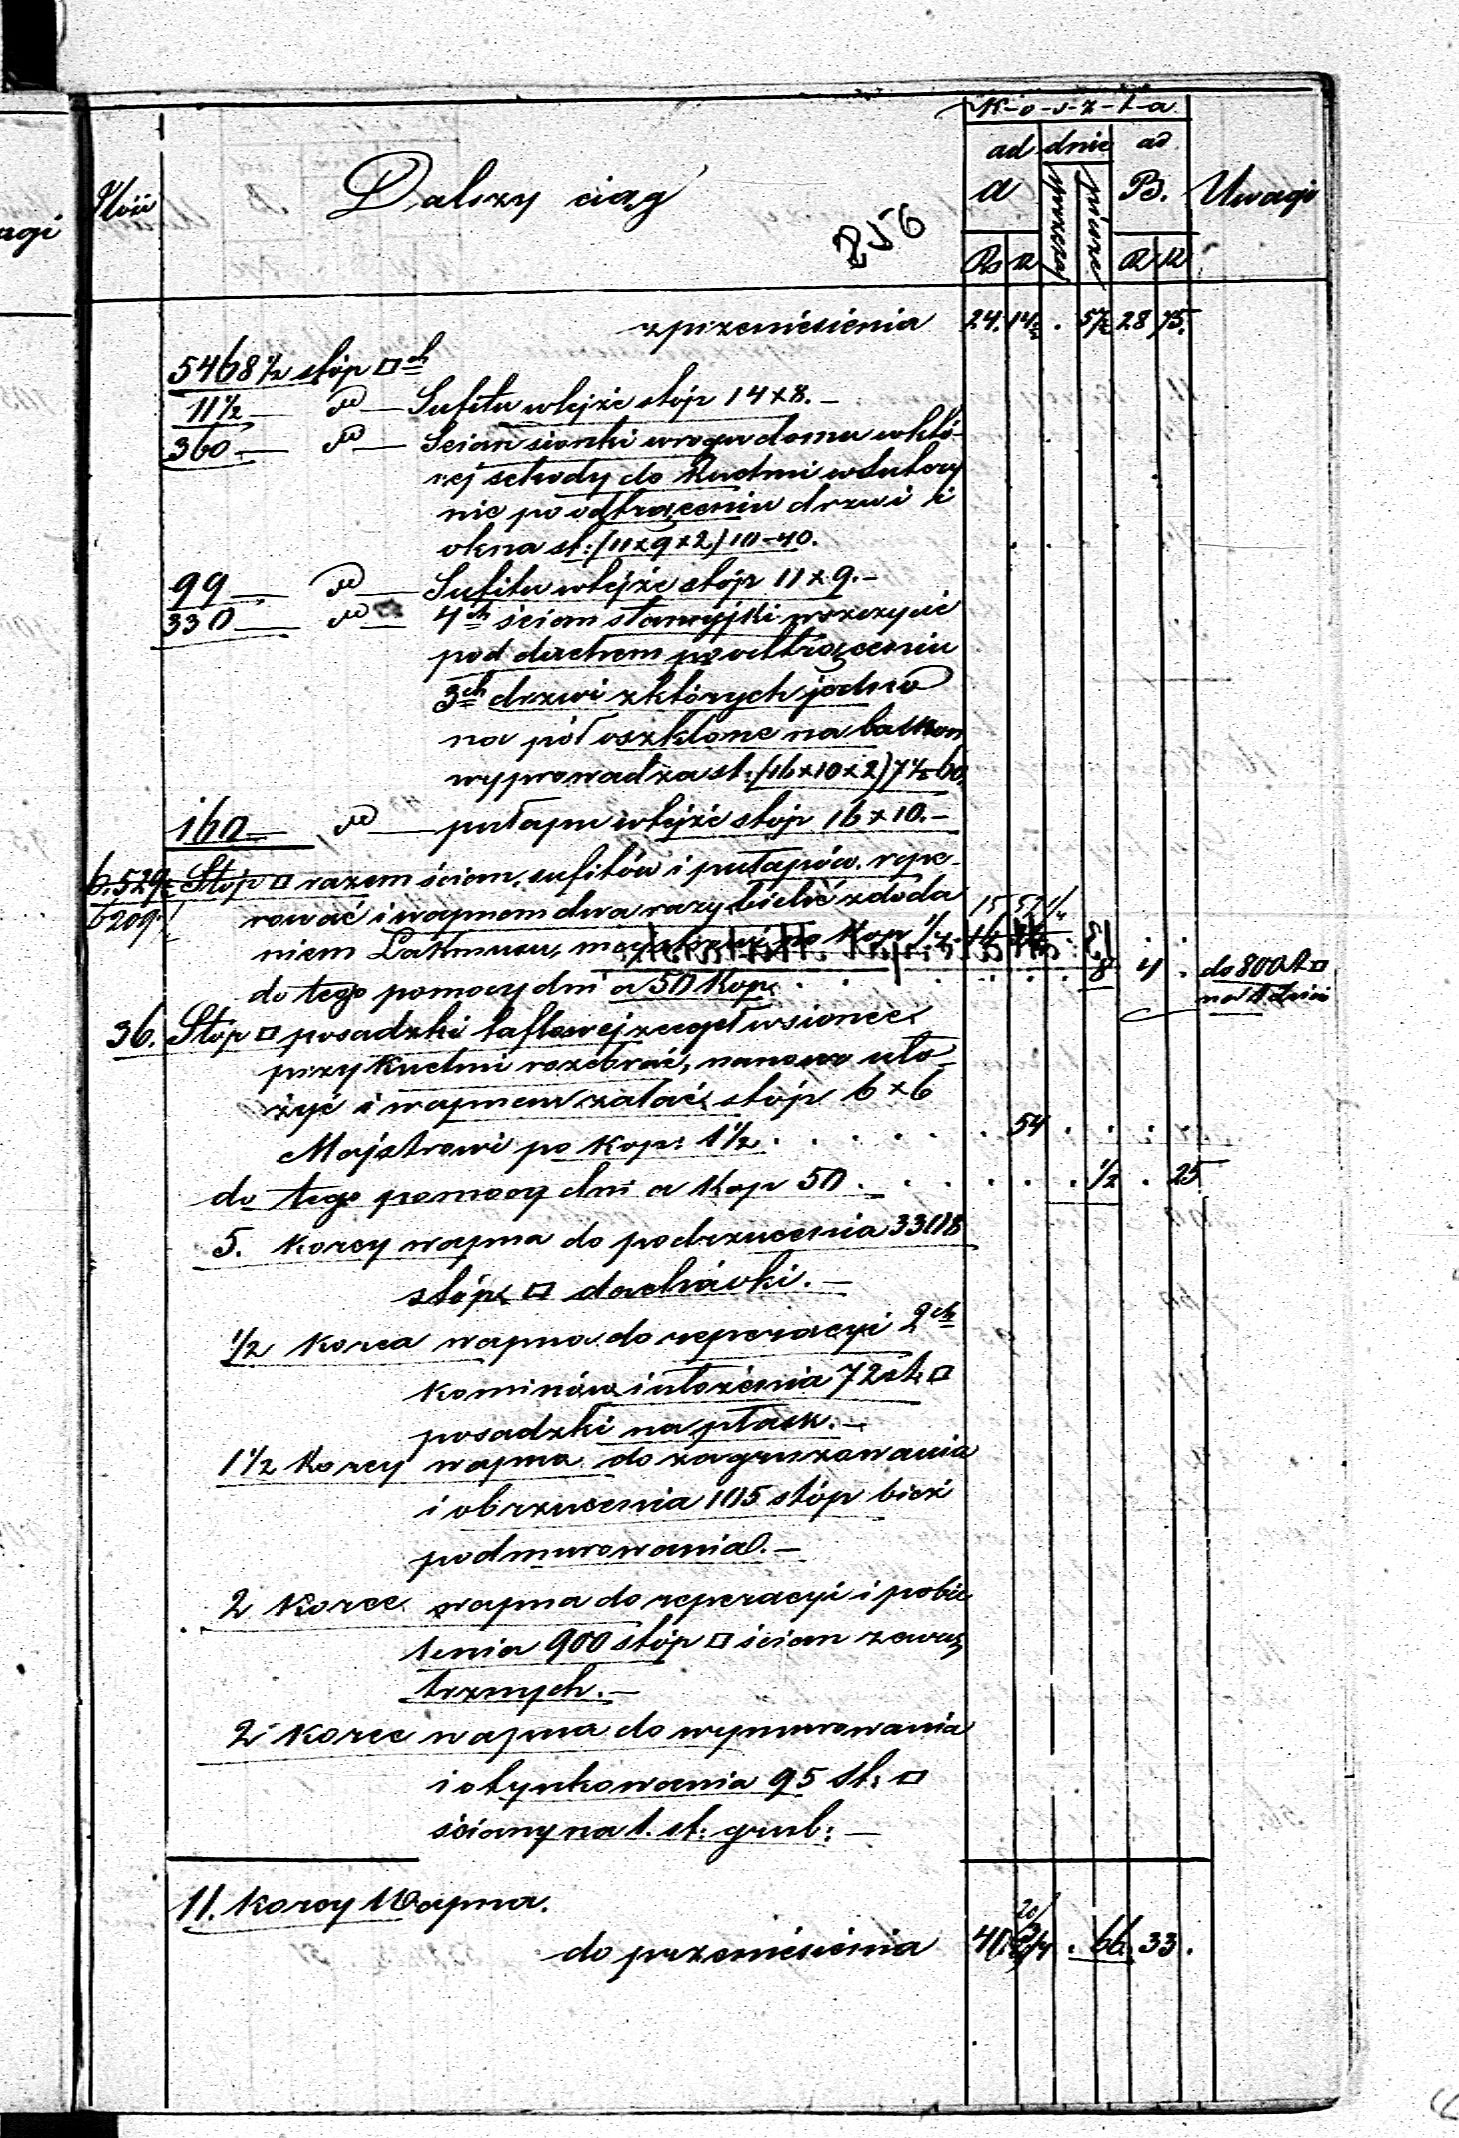 K-o-s-z-t-a
ad dnie ad
Ilość Dalszy ciąg a B. Uwagi
256
Rs K R K
z przeniesienia 24. 14½ . 57½ 28 75.
5468½ stóp □ch
11½ — Sufitu wtejże stóp 14x8.-
360 — Scian sionki wrogu domu wktó-
rej schody do Kuchni w Sutery
nie po odtrąceniu drzwi i
okna st: (11x9x2) 10-40.
99 — Sufitu wtejże stóp 11x9.-
330 — 4ch ścian stancyjki w szczycie
pod dachem po odtrąceniu
3ch drzwi z których jedne
na pół oszklone na balkon
wyprowadza st: (16x10x2) 7½-60.
160 — pułapu wtejże stóp 16x10.-
6.529½ Stóp □ razem ścian, sufitów i pułapów repe-
6209 rować i wapnem dwa razy bielić z doda
niem Lakmusu, majstrowi po Kop ¼
15 52¼
do tego pomocy dni a 50 Kop. 8 4 . do 800 st □
na 1 dzień
36. Stóp □ posadzki taflowej z cegeł w sionce
przy Kuchni rozebrać, nanowo uło-
żyć i wapnem zalać, stóp 6x6
Majstrowi po Kop: 1½ . . . . . . 54 . . . .
do tego pomocy dni a Kop 50 . . . . . . ½ . 25
5. Korcy wapna do podrzucenia 3308
stóp □ dachówki.-
½ Korca wapna do reperacyi 2ch
Kominów i ułożenia 72 st □
posadzki na płask.-
1½ Korcy wapna do zagruzowania
i obrzucenia 105 stóp bież
podmurowania.-
2 Korce wapna do reperacyi i pobie
lenia 900 stóp □ ścian zewnę
trznych.-
2 Korce wapna do wymurowania
i otynkowania 95 st: □
ściany na 1. st: grub:-
11. Korcy Wapna.
do przeniesienia . 66 33 .